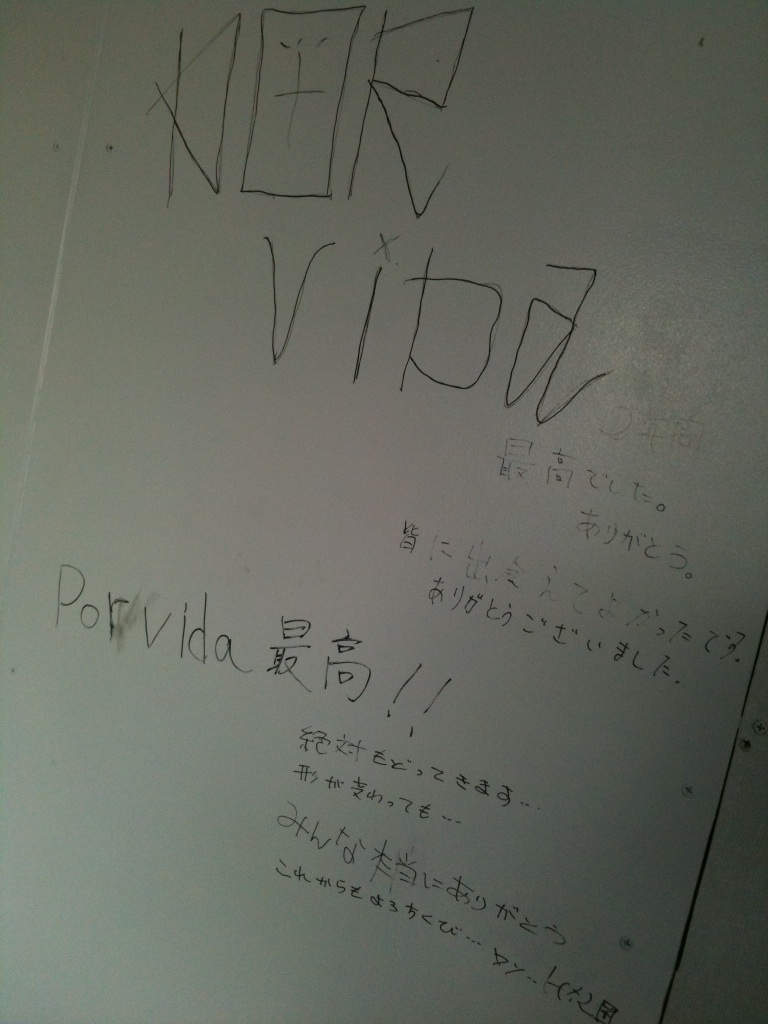 POR
vida
最高でした。
ありがとう。
皆に出会えてよかったです。
ありがとうございました。
Por vida 最高!!
絶対もどってきます…
形が変わっても…
みんな本当にありがとう
これからもよろちくび…